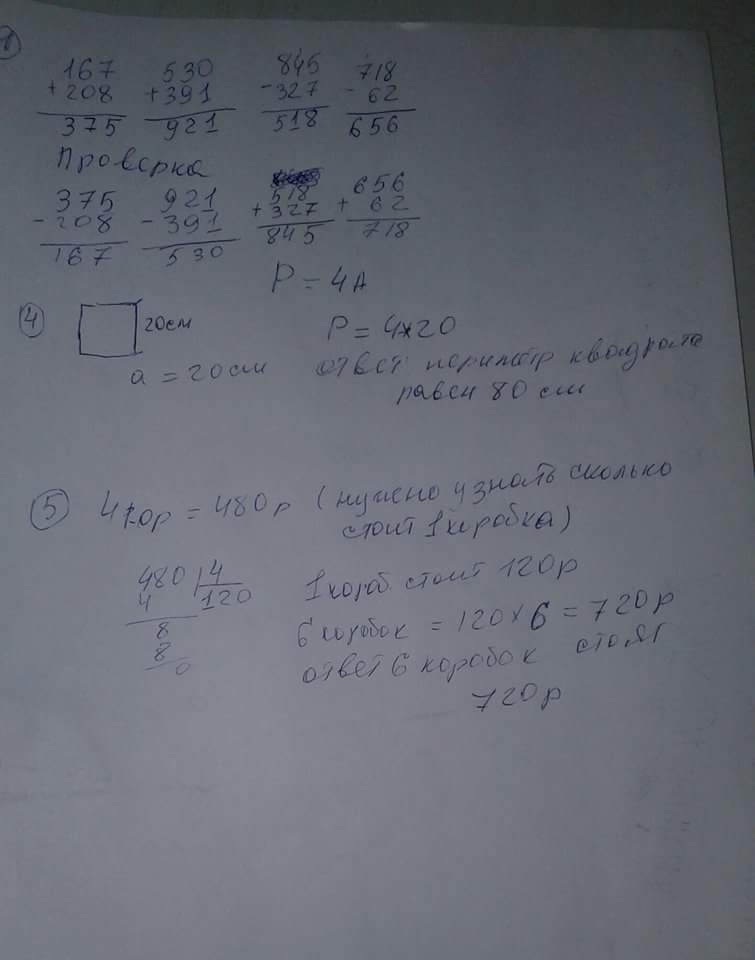 1
167 530 845 718
+208 +391 -327 -62
375 921 518 656
Проверка
375 921 518 656
-208 -391 +327 +62
167 530 845 718
P = 4A
4 20см P = 4×20
a = 20см ответ периметр квадрата
равен 80 см
5 4 кор = 480р (нужно узнать сколько
стоит 1 коробка)
480 4 1 короб стоит 120р
4 120
8 6 коробок = 120×6 = 720р
8 ответ 6 коробок стоят
0
720р